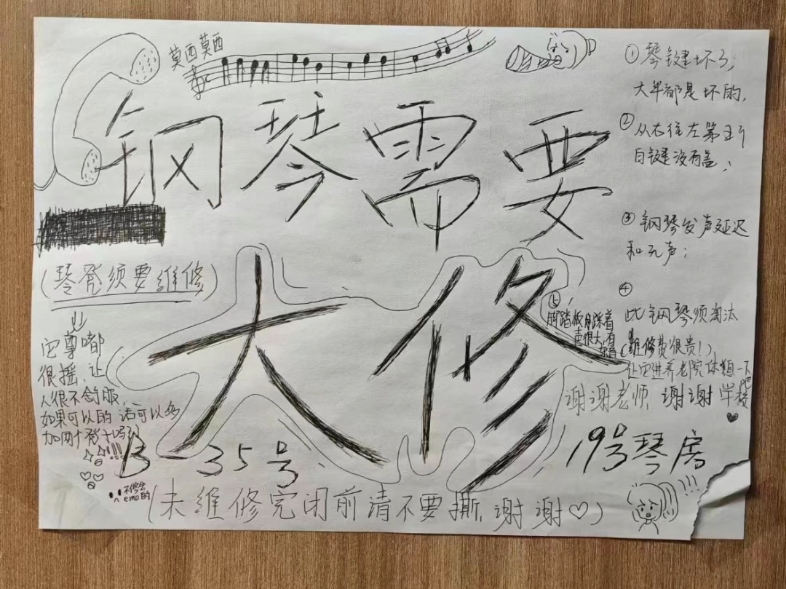 莫西莫西
钢琴需要
大修
(琴凳须要維修)
它尊嘟
很摇,让
人很不舒服,
如果可以的话可以多
加两个凳卡吗
!!!
B-35号
19号琴房
(未維修完闭前清不要撕,谢谢♡)
①琴键坏了,
大半都是坏的,
②从右往左第三个
白键没有盖;
③钢琴发声延迟
和无声;
④
此钢琴须淘汰
(維修費很贵!)
让它进养老院休息一下吧
谢谢老师,谢谢学校
♥
⑤
脚踏板用踩着
声很大,有
!!!